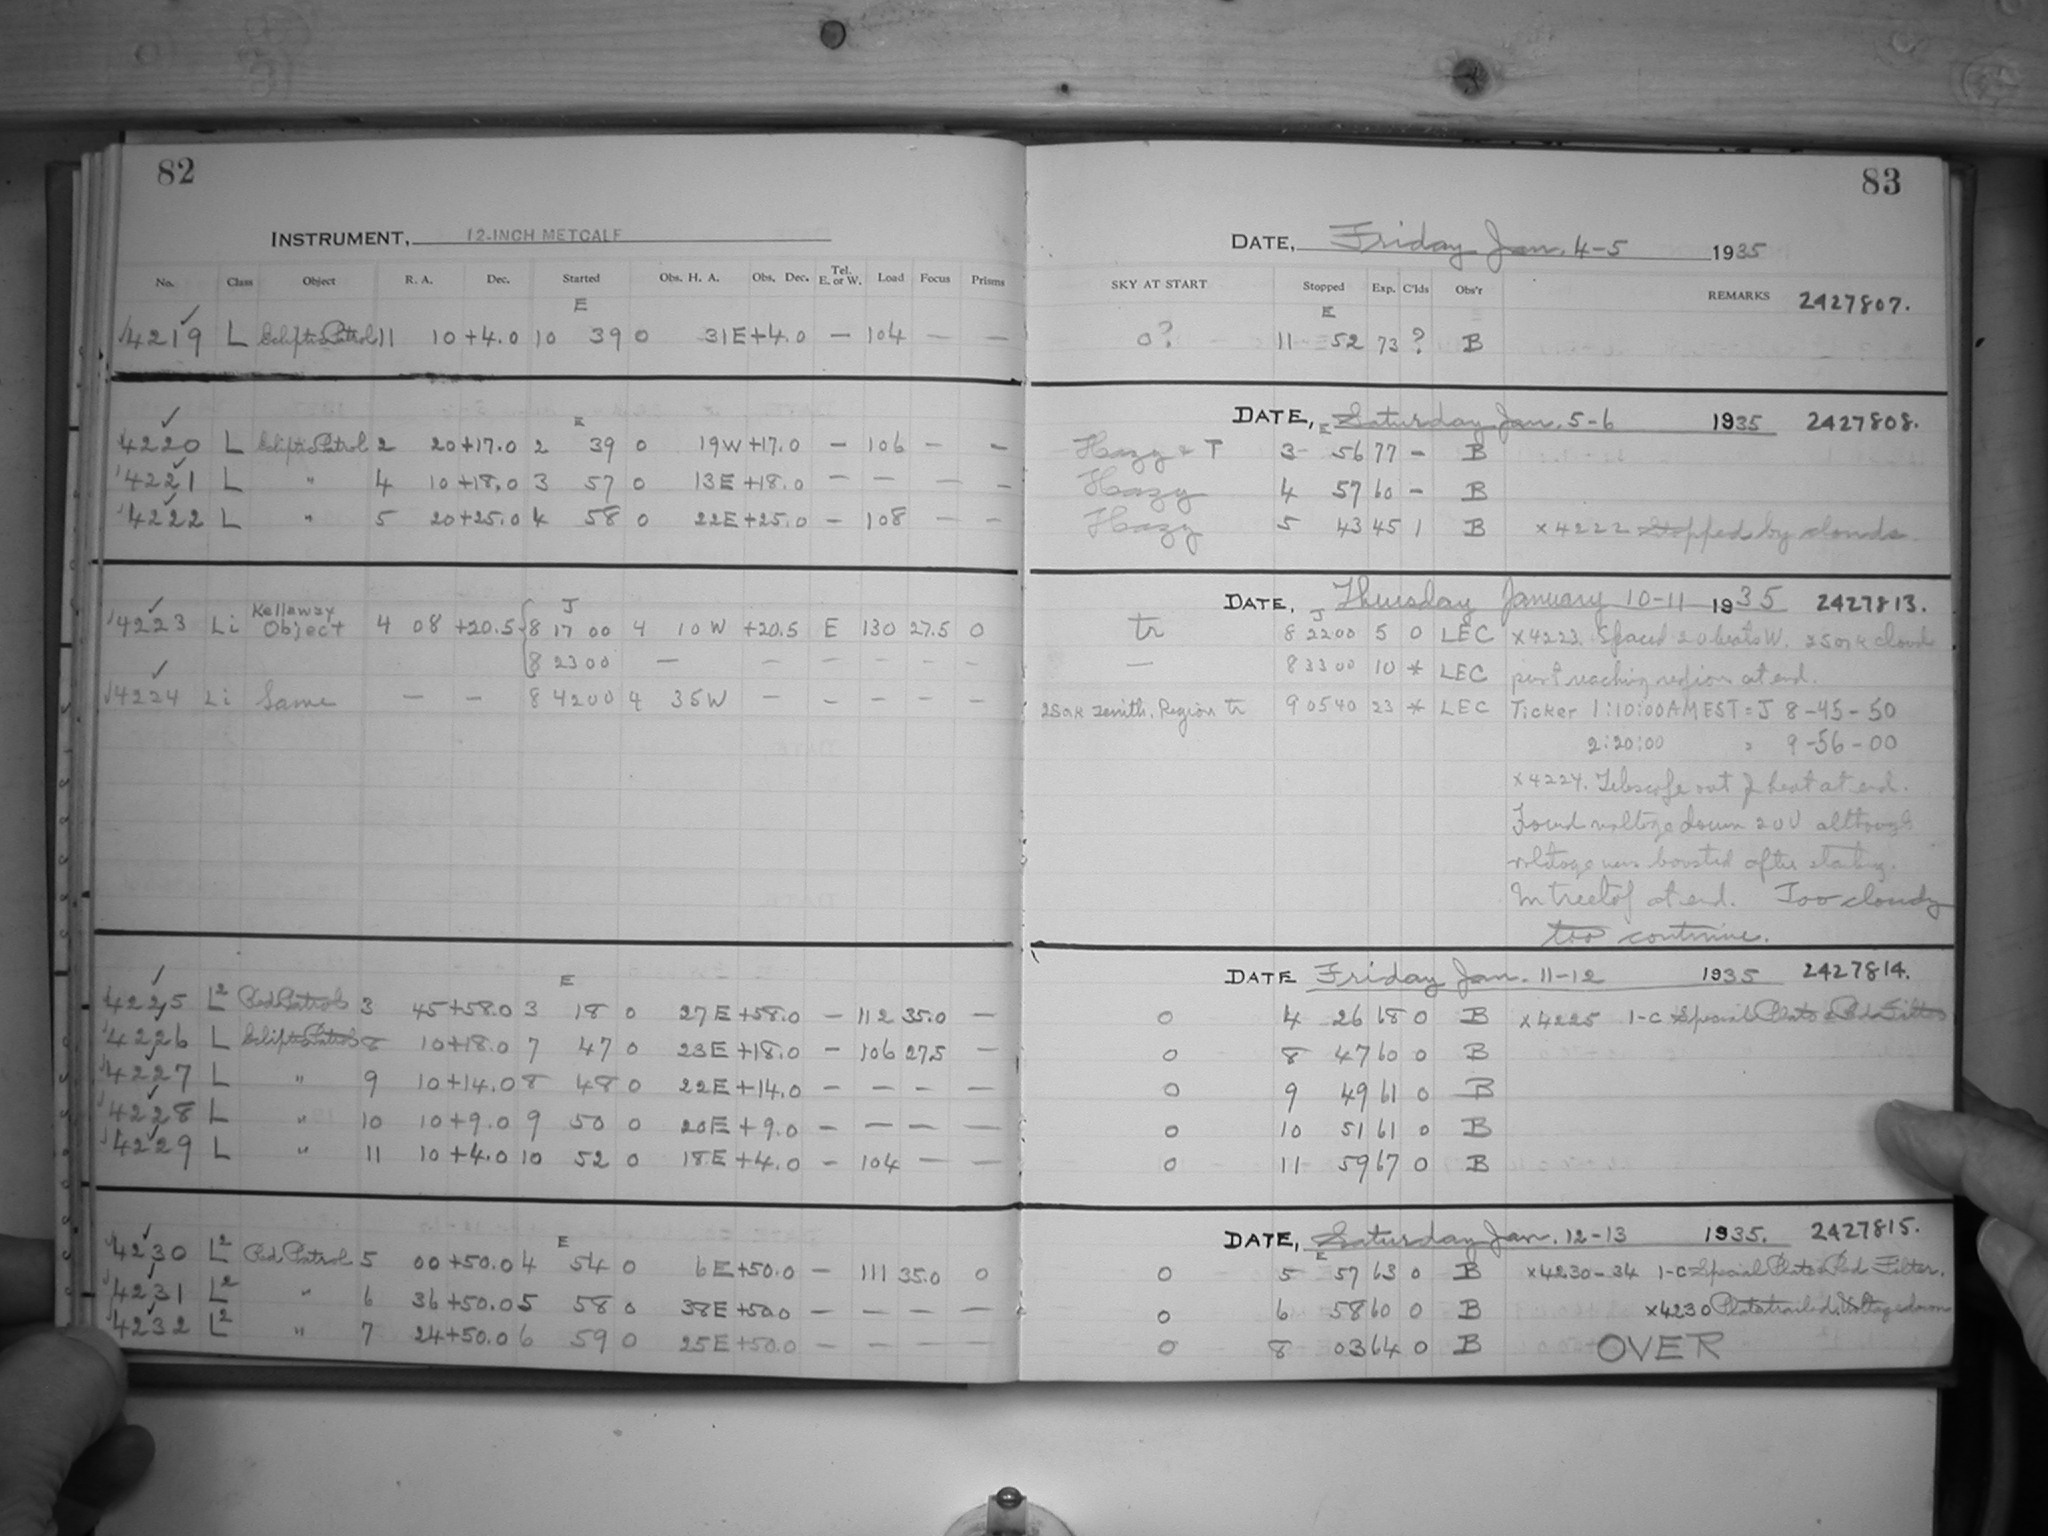 82
INSTRUMENT, 12-INCH METCALF
No. Class Object R. A. Dec. Started Obs. H. A. Obs. Dec. Tel. E. or W. Load Focus Prisms
E
4219 L Ecliptic Patrol 11 10 +4.0 10 39 0 31E +4.0 — 104 — —
E
4220 L Ecliptic Patrol 2 20 +17.0 2 39 0 19W +17.0 — 106 — —
4221 L " 4 10 +18.0 3 57 0 13E +18.0 — — — —
4222 L " 5 20 +25.0 4 58 0 22E +25.0 — 108 — —
J
4223 Li Kellaway Object 4 08 +20.5 8 17 00 4 10 W +20.5 E 130 27.5 0
8 23 00 — — — — — —
4224 Li Same — — 8 42 00 4 35W — — — — —
E
4225 L2 Red Patrol 3 45 +58.0 3 18 0 27E +58.0 — 112 35.0 —
4226 L Ecliptic Patrol 8 10 +18.0 7 47 0 23E +18.0 — 106 27.5 —
4227 L " 9 10 +14.0 8 48 0 22E +14.0 — — — —
4228 L " 10 10 +9.0 9 50 0 20E +9.0 — — — —
4229 L " 11 10 +4.0 10 52 0 18E +4.0 — 104 — —
E
4230 L2 Red Patrol 5 00 +50.0 4 54 0 6E +50.0 — 111 35.0 0
4231 L2 " 6 36 +50.0 5 58 0 38E +50.0 — — — —
4232 L2 " 7 24 +50.0 6 59 0 25E +50.0 — — — —
83
DATE, Friday Jan. 4-5 1935
SKY AT START Stopped Exp. C'lds Obs'r REMARKS 2427807.
E
0? 11 52 73 ? B
DATE, Saturday Jan. 5-6 1935 2427808.
E
Hazy + T 3 56 77 - B
Hazy 4 57 60 - B
Hazy 5 43 45 1 B x4222 Stopped by clouds.
DATE, Thursday January 10-11 1935 2427813.
J
tr 8 22 00 5 0 LEC x4223. Spaced 20 beats W. cloud
— 8 33 00 10 * LEC just reaching region at end.
zenith. Region tr 9 05 40 23 * LEC Ticker 1:10:00 AM EST = J 8-45-50
2:20:00 " 9-56-00
x4224. Telescope out of heat at end.
Found voltage down 20V although
voltage was boosted after starting.
In treetop at end. Too cloudy
too continue.
DATE Friday Jan. 11-12 1935 2427814.
0 4 26 68 0 B x4225 1-C Special Plate & Red Filter
0 8 47 60 0 B
0 9 49 61 0 B
0 10 51 61 0 B
0 11 59 67 0 B
DATE, Saturday Jan. 12-13 1935. 2427815.
E
0 5 57 63 0 B x4230-34 1-C Special Plate & Red Filter.
0 6 58 60 0 B x4230 Plate trailed. Voltage down
0 8 03 64 0 B OVER